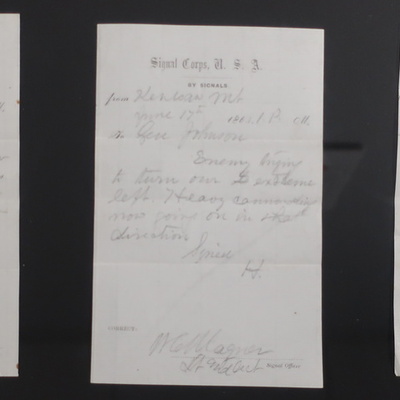 Signal Corps, U. S. A.
BY SIGNALS
from Kenesaw Mt
June 17th 1864 1 P. M.
To Gen Johnson
Enemy trying
to turn our extreme
left. Heavy cannonading
now going on in that
direction
H.
CORRECT:
Signal Officer